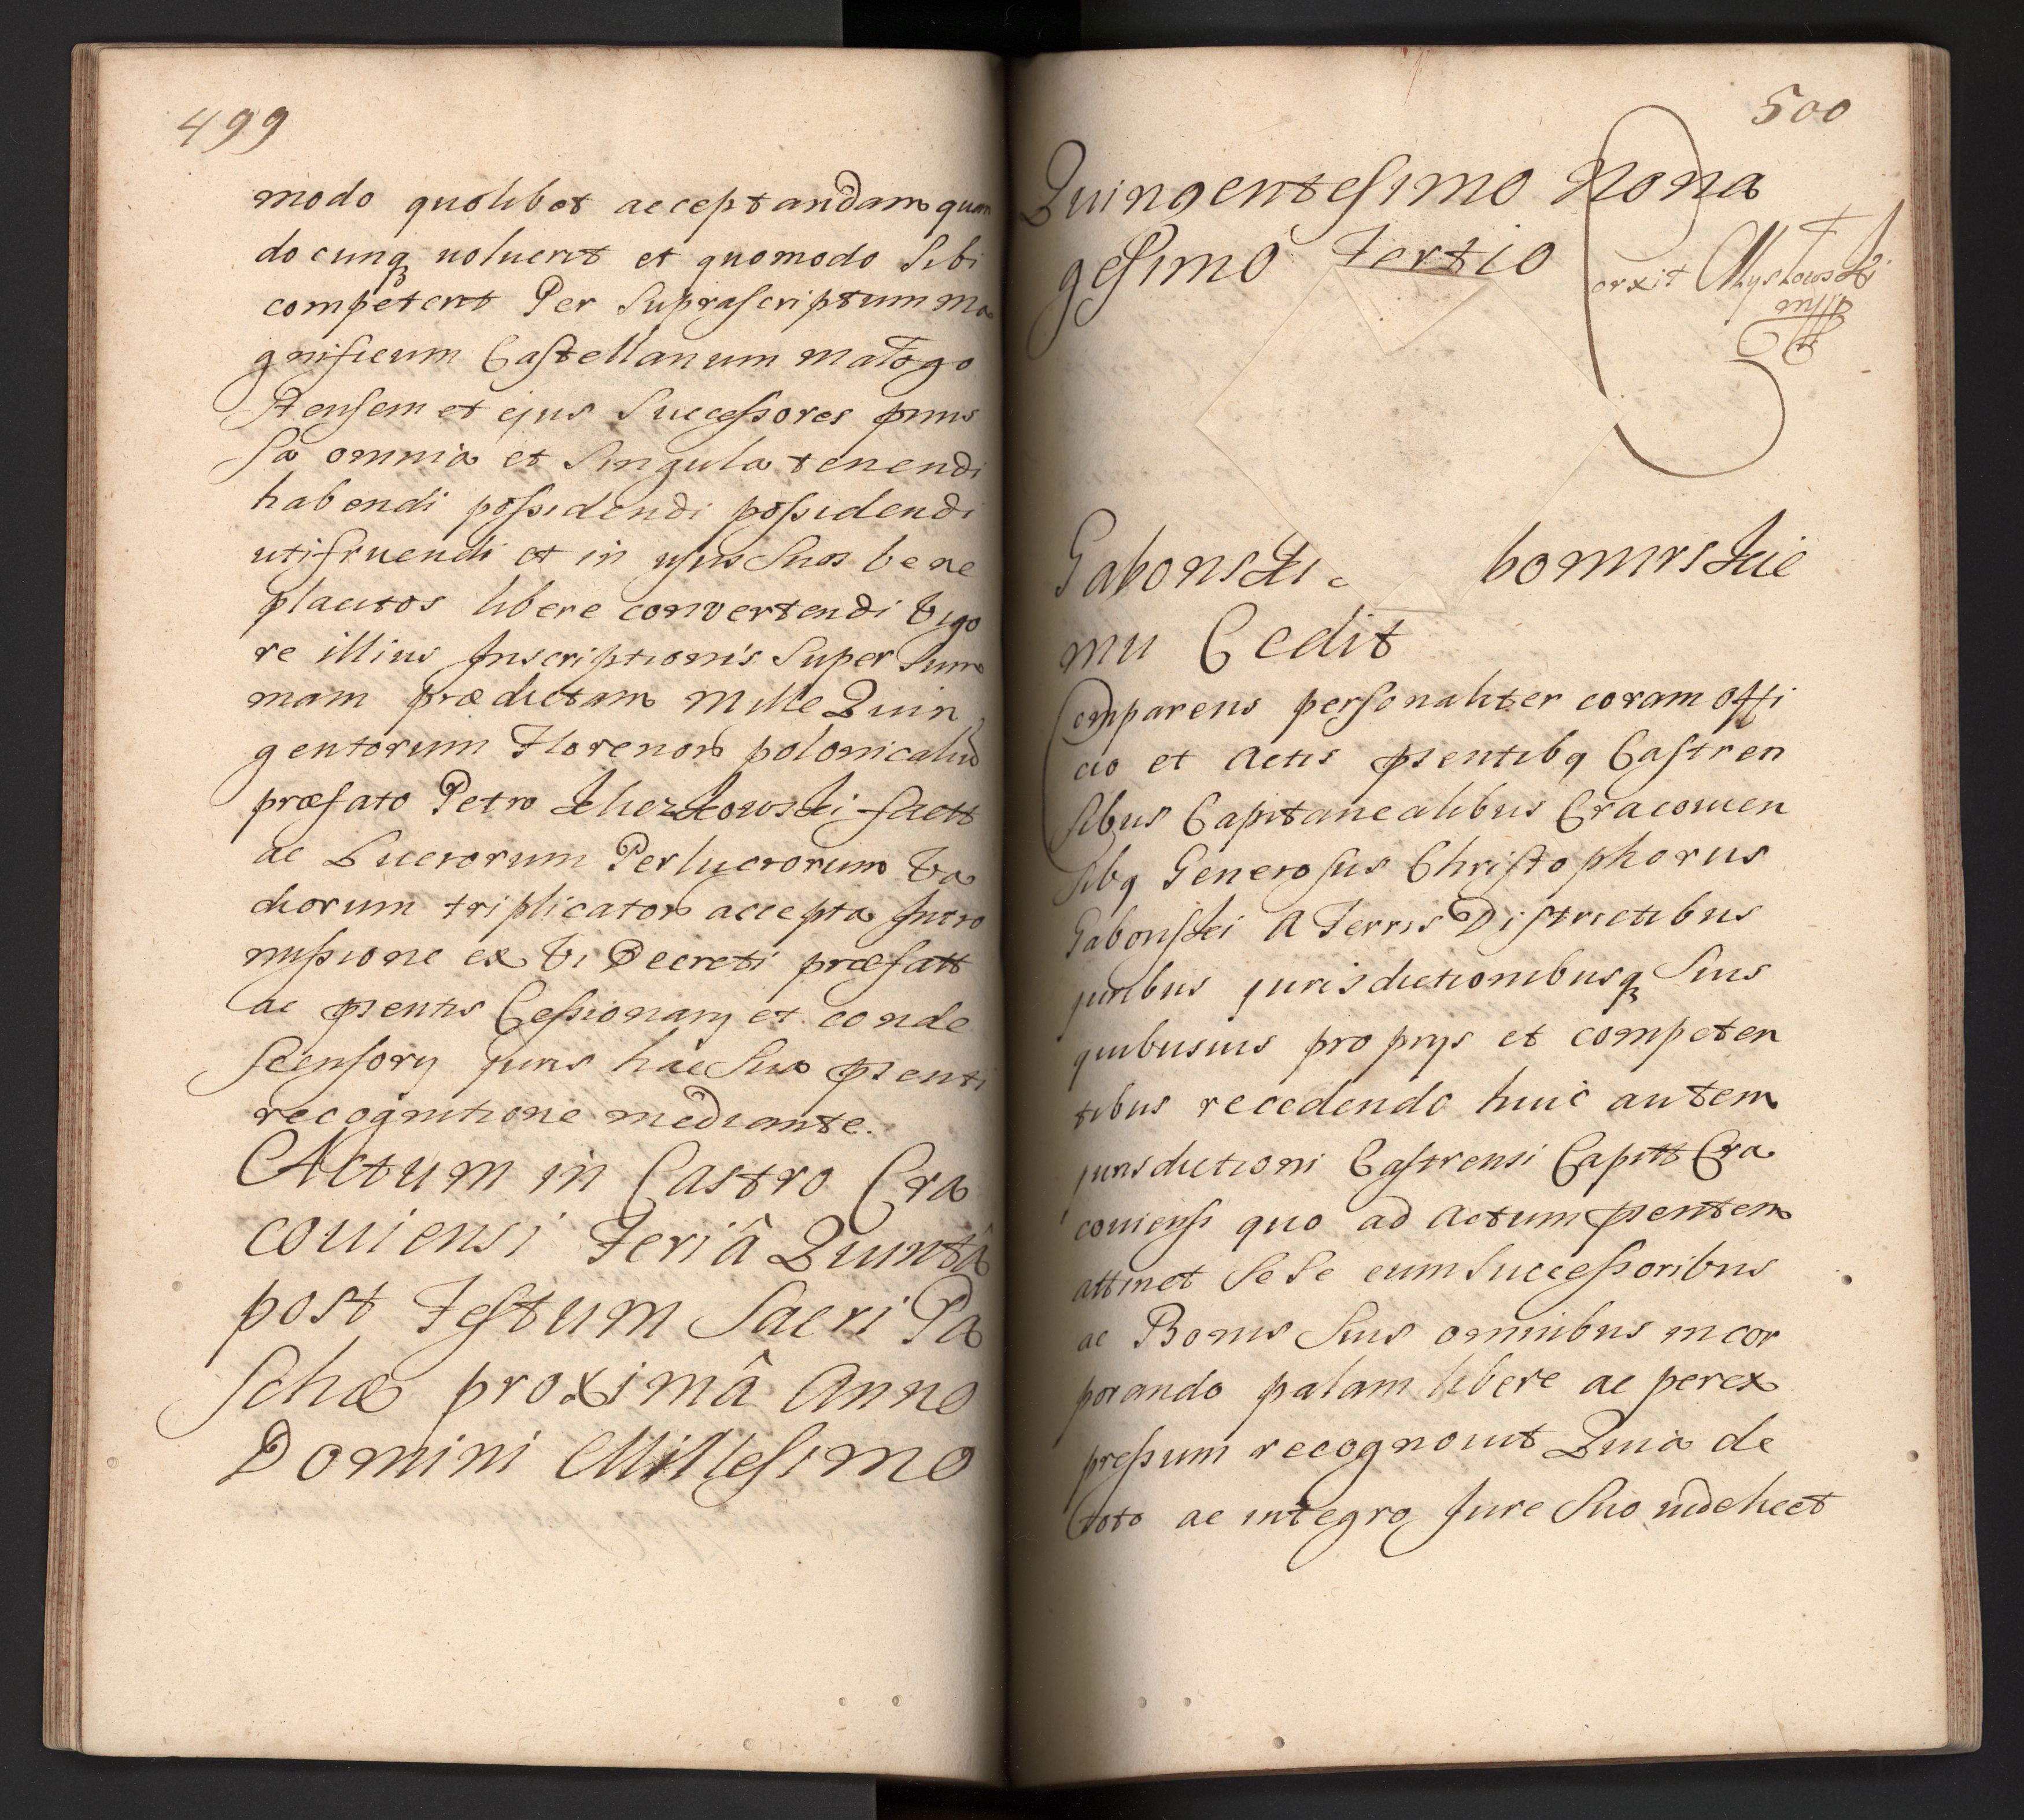 499
modo quolibet acceptandam quan
docunq voluerit et quomodo Sibi
competent Per Suprascriptum Ma
gnificum Castellanum Małogo
stensem et ejus Successores pmis
sa omnia et Singula tenendi
habendi possidendi possidendi
utifruendi et in usus Suos bene
placitos libere convertendi Vigo
re illius Inscriptionis Super Sum
mam prædictam Mille Quin
gentorum Florenor polonicaliu
præfato Petro fact
ac Lucrorum Perlucrorum Va
diorum triplicator accepta Intro
missione ex Vi Decreti præfatt
ac psentis Cessionarij et conde
scensorij juris hac Sua psenti
recognitione mediante.
Actum in Castro Cra
coviensi Feriâ Quintâ
post Festum Sacri Pa
schæ proximâ Anno
Domini Millesimo
500
Quingentesimo Nona
gesimo Tertio
orxit Myskowski
mpp
Gabonski bomirskie
mu Cedit
Comparens personaliter coram Offi
cio et Actis psentibq Castren
sibus Capitanealibus Cracovien
sibq Generosus Christophorus
Gabonski A Terris Districtibus
juribus jurisdictionibusq Suis
quibusvis proprijs et competen
tibus recedendo huic autem
jurisdictioni Castrensi Capitt Cra
coviensi quo ad Actum psentem
attinet Se Se cum Successoribus
ac Bonis Suis omnibus incor
porando palam libere ac perex
pressum recognovit Quia de
toto ac integro Jure Suo videlicet